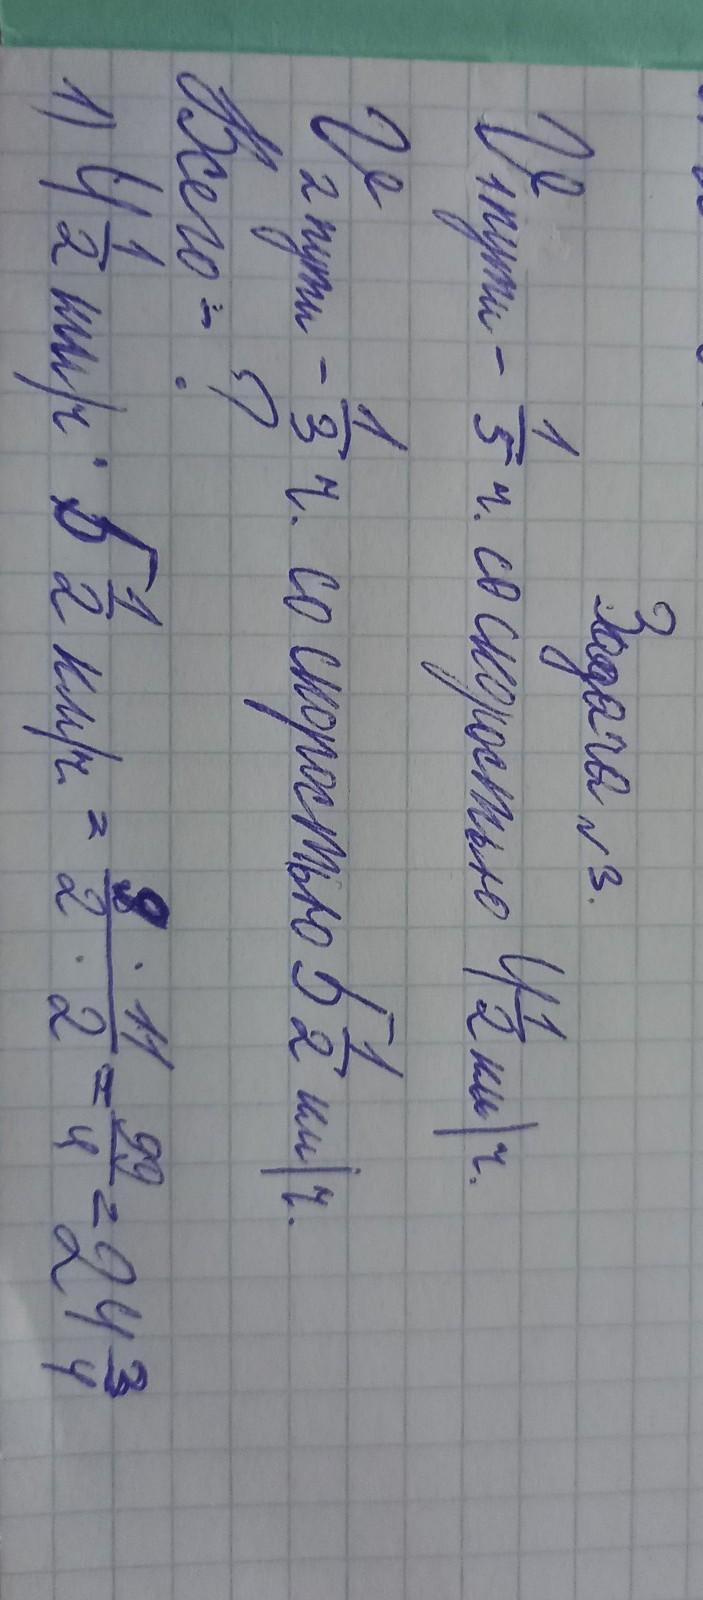 Задача №3.
V 1 пути - 1/5 ч. со скоростью 4 1/2 км/ч.
V 2 пути - 1/3 ч. со скоростью 5 1/2 км/ч.
Всего - ?
1) 4 1/2 км/ч · 5 1/2 км/ч. = 9 · 11 / 2 · 2 = 99/4 = 24 3/4